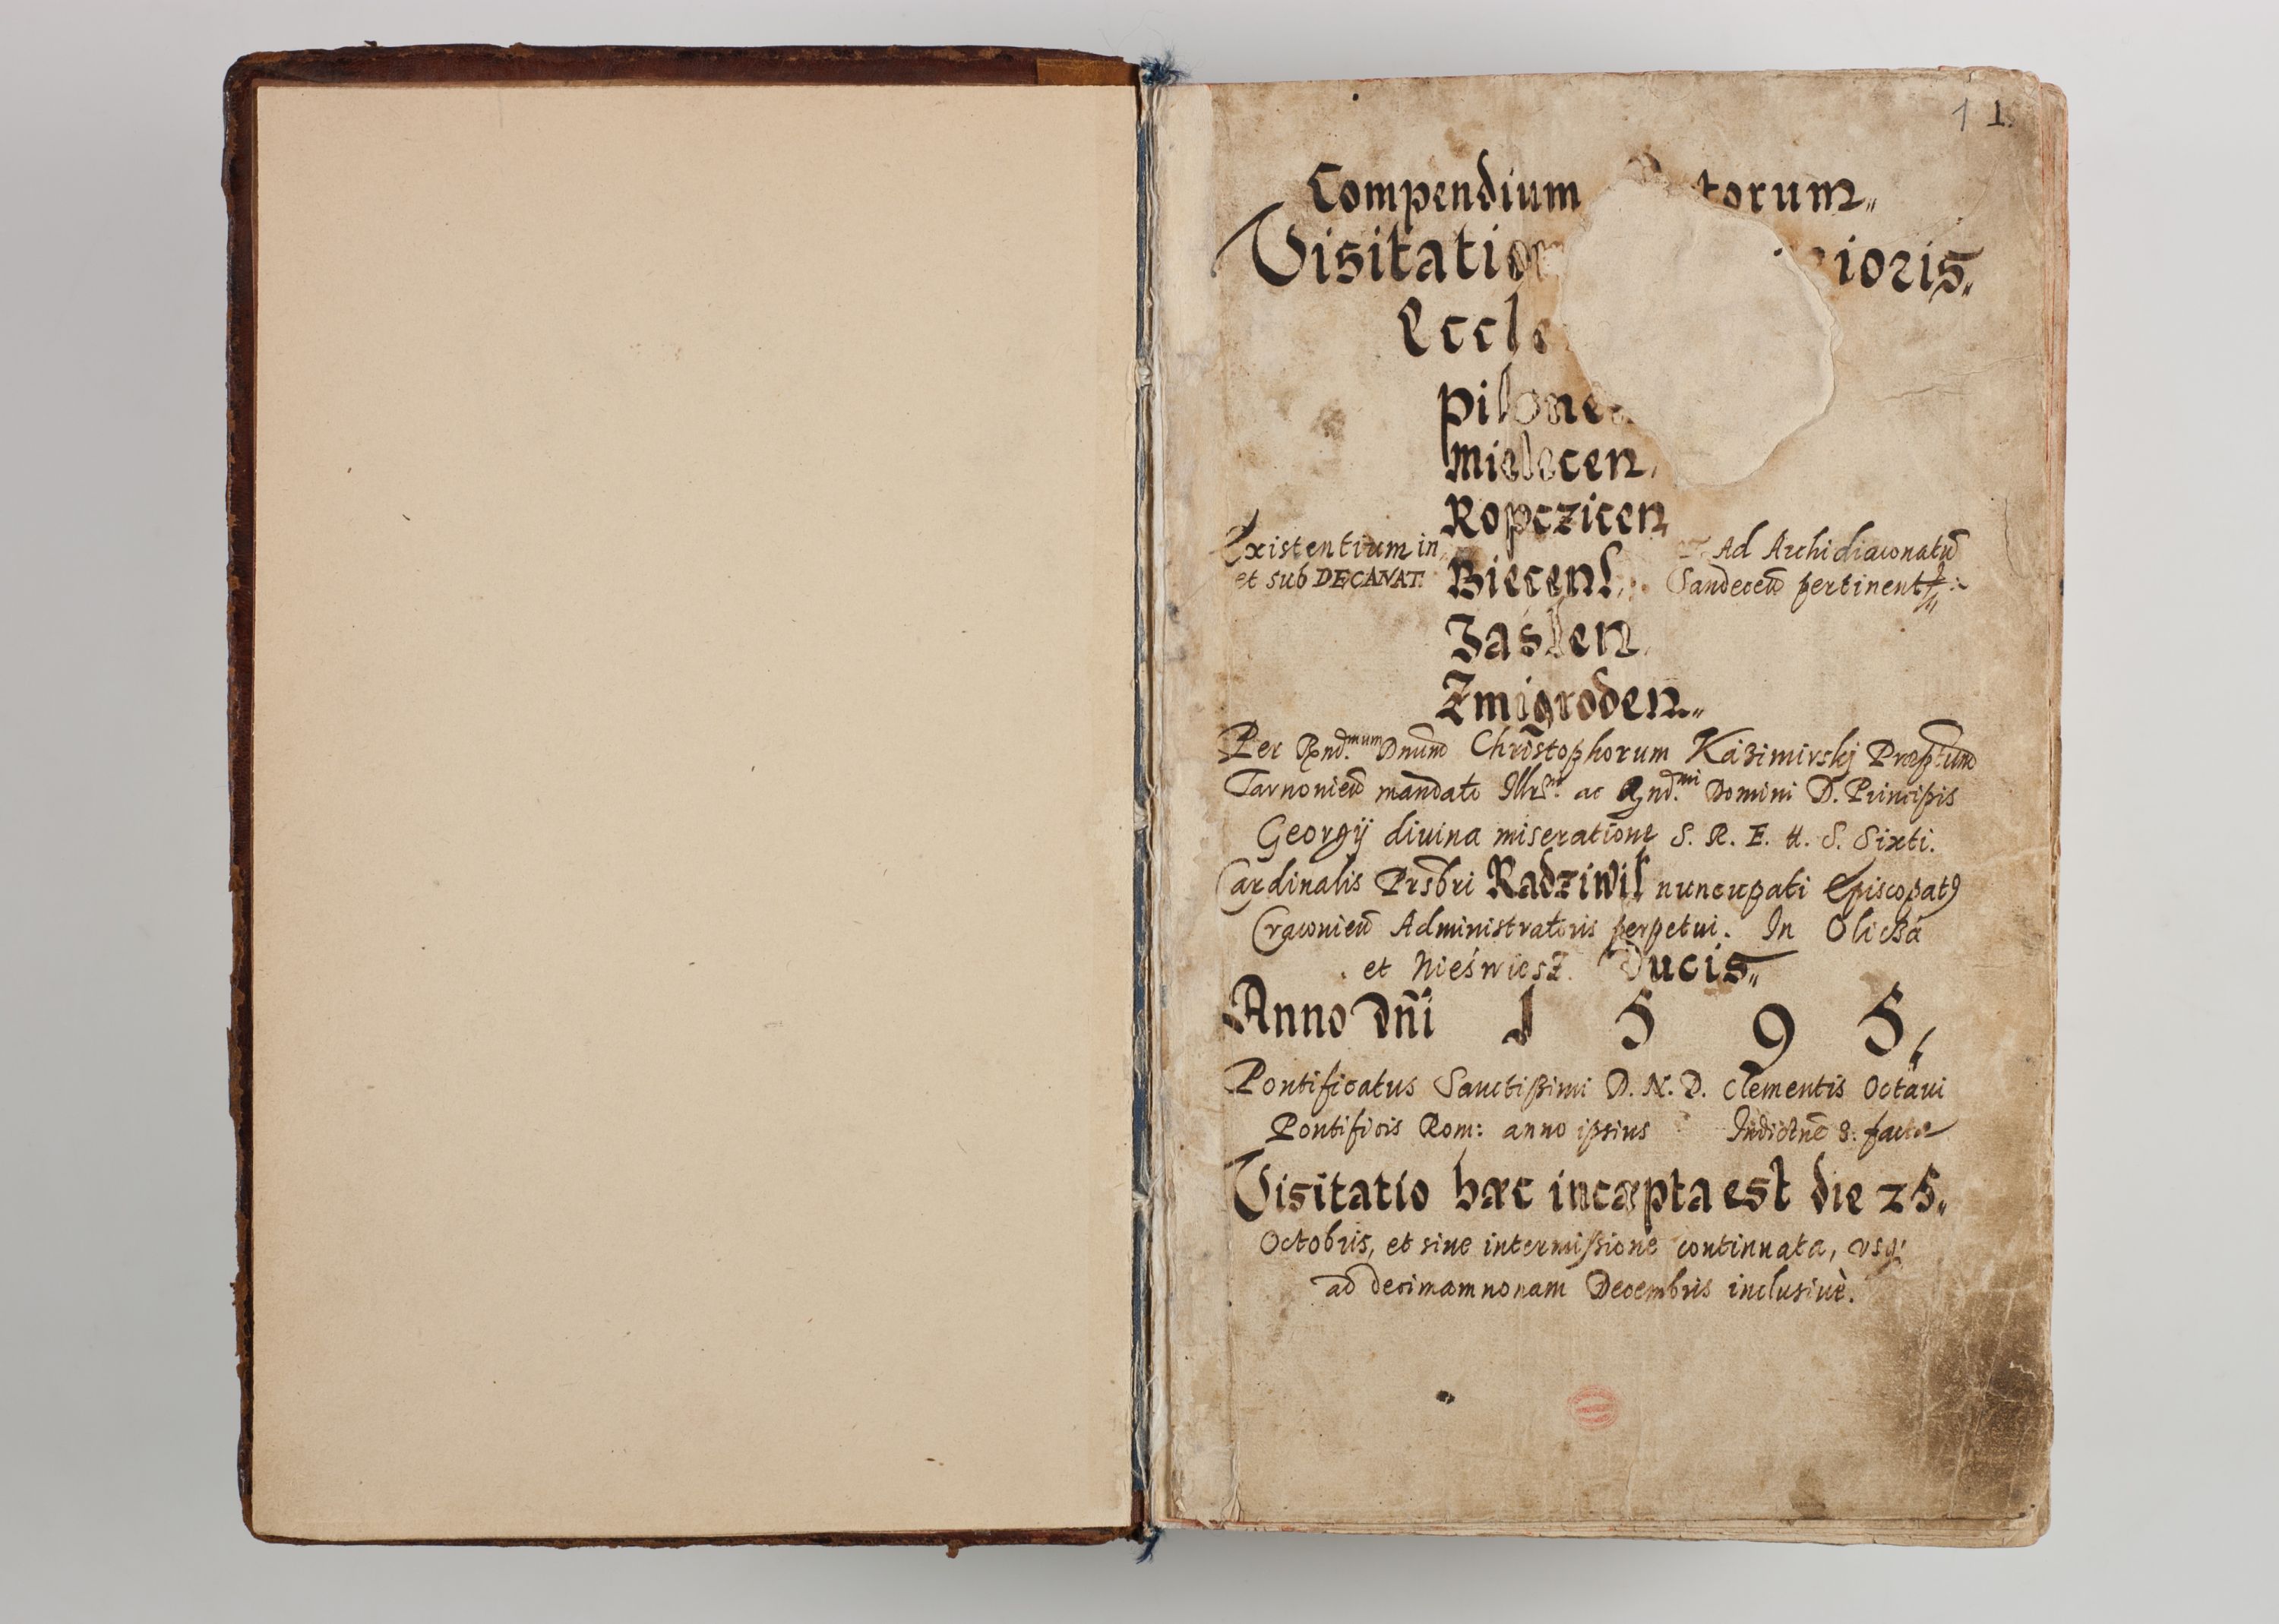 1 1.
Compendium torum
Visitation ioris
Eccle
pilzne
Mielecen
Ropczicen
Existentium in
et sub DECANAT.
Biecens
Ad Archidiaconatū
Sandeceñ pertinent
Jaslen
Zmigroden
Per Rnd.mum Dnum Christophorum Kazimirskj Præptum
Tarnovieñ mandato Illrsmi ac Rnd.mi Domini D. Principis
Georgij diuina miseratione S. R. E. tt. S. Sixti.
Cardinalis Prsbri Radziwil nuncupati Episcopatꝯ
Cracovieñ Administratoris perpetui. In Olicka
et Nieświesz. Ducis
Anno Dñi 1 5 9 5
Pontificatus Sanctißimi D. N. D. Clementis Octaui
Pontificis Rom: anno ipsius Indictnē 8. facta
Visitatio hæc incæpta est die 25
Octobris, et sine intermißione continuata, vsq
ad decimamnonam Decembris inclusiuè.